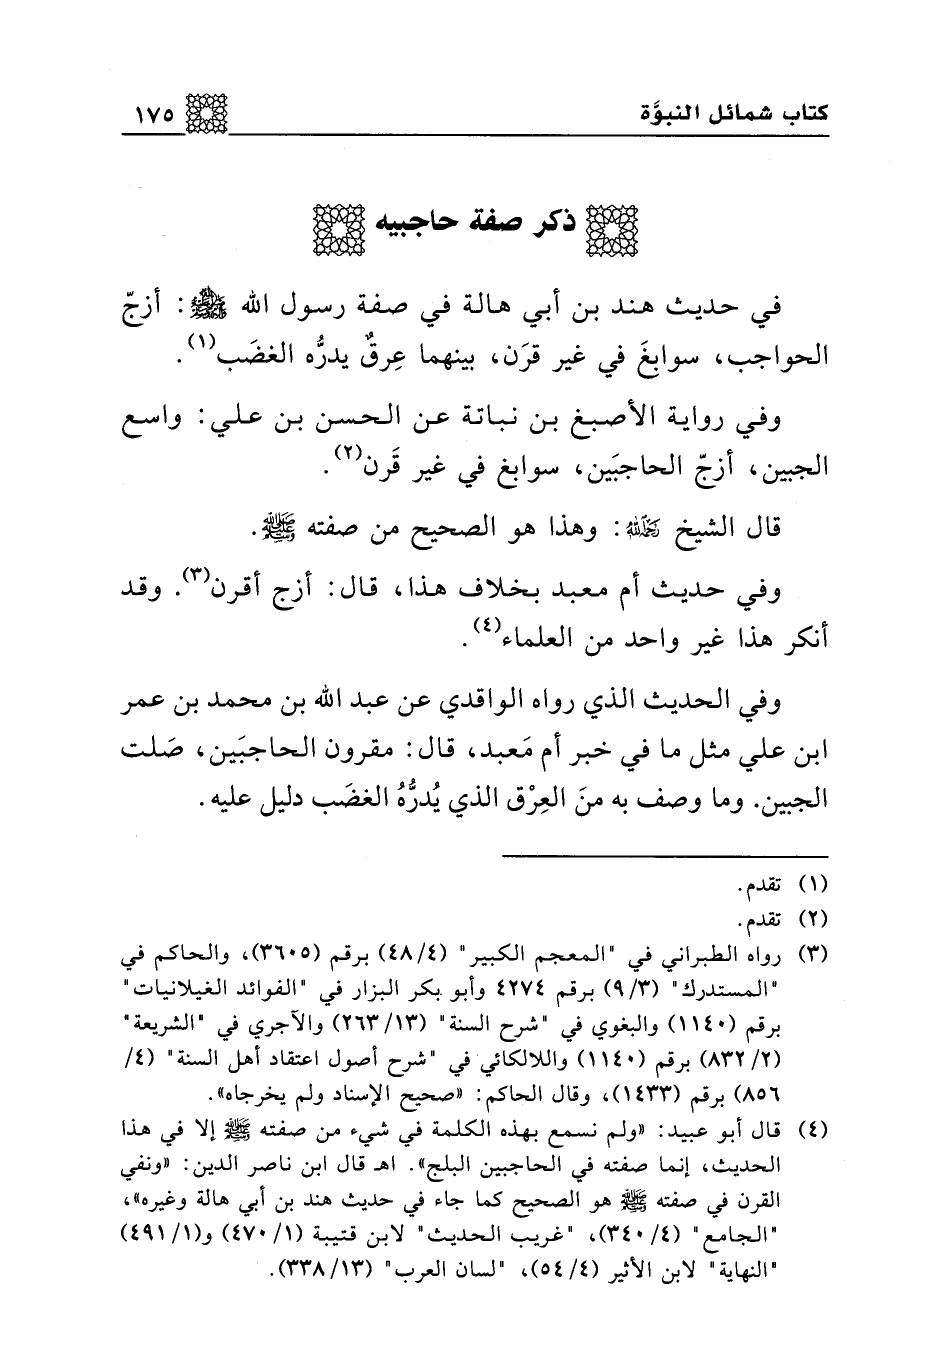 كتاب شمائل النبوَّة ١٧٥
ذكر صفة حاجبيه
في حديث هند بن أبي هالة في صفة رسول الله ﷺ: أزجّ
الحواجب، سوابغَ في غير قرَن، بينهما عِرقٌ يدرُّه الغضَب(١).
وفي رواية الأصبغ بن نباتة عن الحسن بن علي: واسع
الجبين، أزجّ الحاجبَين، سوابغ في غير قَرن(٢).
قال الشيخ رَحِمَهُ اللهُ: وهذا هو الصحيح من صفته ﷺ.
وفي حديث أم معبد بخلاف هذا، قال: أزج أقرن(٣). وقد
أنكر هذا غير واحد من العلماء(٤).
وفي الحديث الذي رواه الواقدي عن عبد الله بن محمد بن عمر
ابن علي مثل ما في خبر أم مَعبد، قال: مقرون الحاجبَين، صَلت
الجبين. وما وصف به منَ العِرْق الذي يُدرُّهُ الغضَب دليل عليه.
(١) تقدم.
(٢) تقدم.
(٣) رواه الطبراني في "المعجم الكبير" (٤٨/٤) برقم (٣٦٠٥)، والحاكم في
"المستدرك" (٩/٣) برقم ٤٢٧٤ وأبو بكر البزار في "الفوائد الغيلانيات"
برقم (١١٤٠) والبغوي في "شرح السنة" (٢٦٣/١٣) والآجري في "الشريعة"
(٨٣٢/٢) برقم (١١٤٠) واللالكائي في "شرح أصول اعتقاد أهل السنة" (٤/
٨٥٦) برقم (١٤٣٣)، وقال الحاكم: «صحيح الإسناد ولم يخرجاه».
(٤) قال أبو عبيد: «ولم نسمع بهذه الكلمة في شيء من صفته ﷺ إلا في هذا
الحديث، إنما صفته في الحاجبين البلج». اهـ قال ابن ناصر الدين: «ونفي
القرن في صفته ﷺ هو الصحيح كما جاء في حديث هند بن أبي هالة وغيره»،
"الجامع" (٣٤٠/٤)، "غريب الحديث" لابن قتيبة (٤٧٠/١) و(٤٩١/١)
"النهاية" لابن الأثير (٥٤/٤)، "لسان العرب" (٣٣٨/١٣).